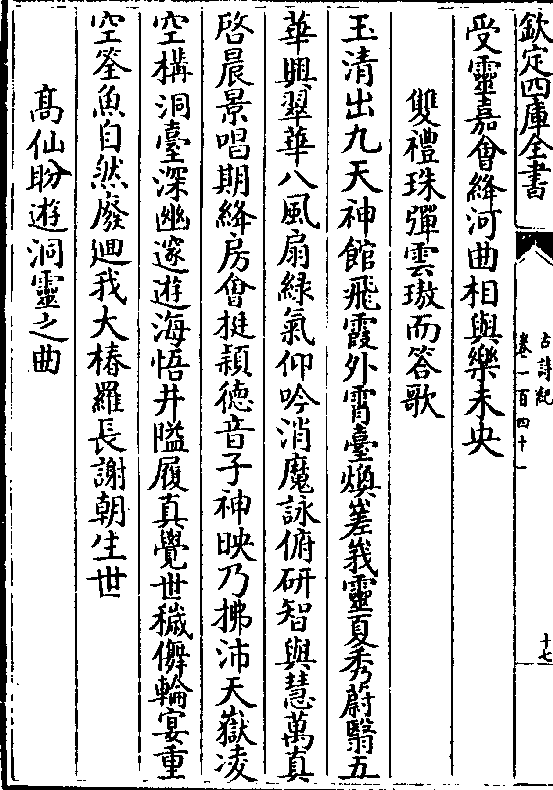 欽定四庫全書
古詩紀
卷一百四十一
十七
受靈嘉會絳河曲相與樂未央
雙禮珠彈雲璈而答歌
玉清出九天神館飛霞外霄臺煥嵳峩靈夏秀蔚翳五
華興翠華八風扇緑氣仰吟消魔詠俯研智與慧萬真
啓晨景唱期絳房會挺頴徳音子神映乃拂沛天嶽凌
空構洞臺深幽邃遊海悟井隘履真覺世穢儛輪宴重
空筌魚自然廢迴我大椿羅長謝朝生世
髙仙盼遊洞靈之曲